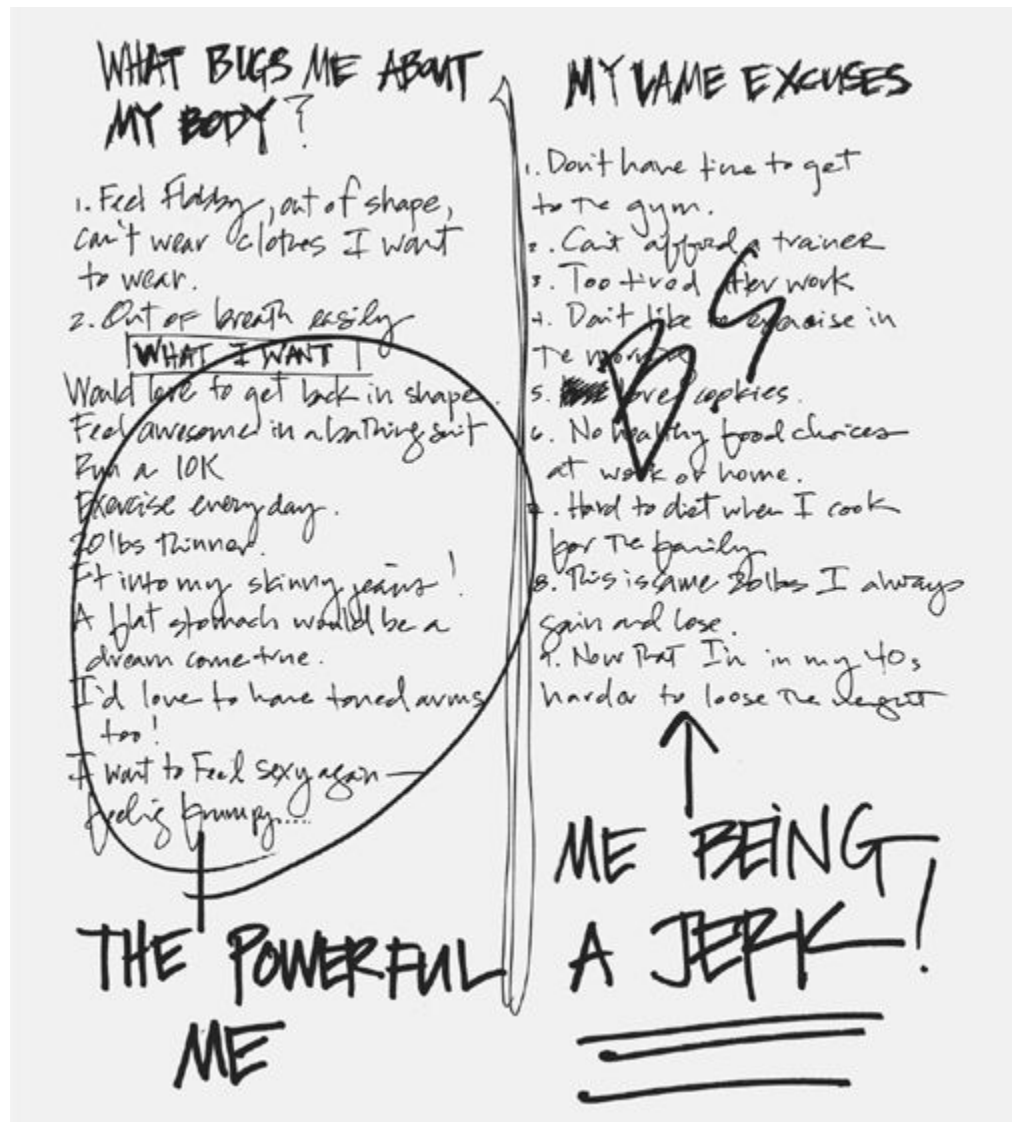 WHAT BUGS ME ABOUT
MY BODY?
1. Feel Flabby, out of shape,
can't wear clothes I want
to wear.
2. Out of breath easily
WHAT I WANT
Would love to get back in shape.
Feel awesome in a bathing suit
Run a 10K
Exercise every day.
20 lbs thinner.
Fit into my skinny jeans!
A flat stomach would be a
dream come true.
I'd love to have toned arms
too!
I want to Feel sexy again —
feelig frumpy....
THE POWERFUL
ME
MY LAME EXCUSES
1. Don't have time to get
to the gym.
2. Can't afford a trainer
3. Too tired after work
4. Don't like to exercise in
the morning
5. love cookies.
6. No healthy food choices
at work or home.
7. Hard to diet when I cook
for the family
8. This is same 20 lbs I always
gain and lose.
9. Now that I'm in my 40s
harder to loose the weight
BS
ME BEING
A JERK!